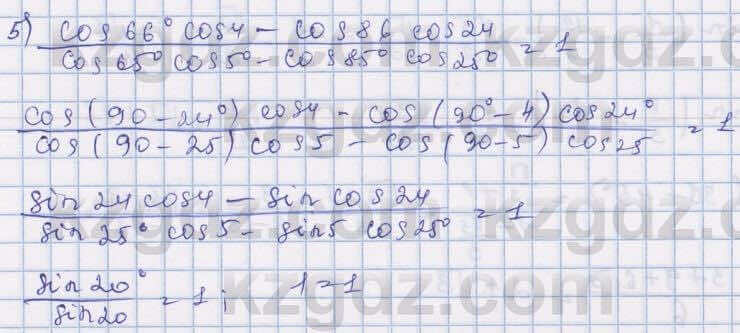 5) cos 66° cos 4 - cos 86 cos 24
cos 65° cos 5° - cos 85° cos 25° = 1
cos (90 - 24°) cos 4 - cos (90° - 4) cos 24°
cos (90 - 25) cos 5 - cos (90 - 5) cos 25 = 1
sin 24 cos 4 - sin cos 24
sin 25° cos 5 - sin 5 cos 25° = 1
sin 20°
sin 20 = 1; 1 = 1
kzgdz.com